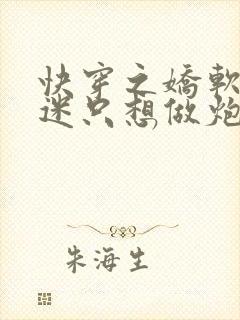 快穿之嬌軟
迷只想做炮
朱海生